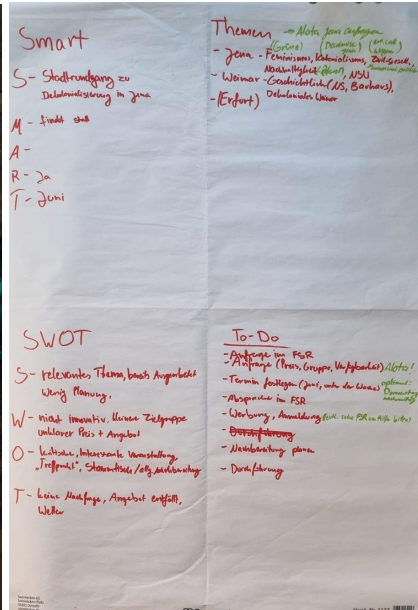 Smart
S - Stadtrundgang zu
Dekolonialisierung in Jena
M - findet statt
A -
R - Ja
T - Juni
Themen
Alota Jena anfragen
(Grüne)
- Jena - Feminismus, Kolonialismus,
Nachhaltigkeit, NSU
- Weimar - Geschichtlich (NS, Bauhaus),
Dekoloniales Weimar
- (Erfurt)
SWOT
S - relevantes Thema, bereits Ausgearbeitet
wenig Planung,
W - nicht innovativ, kleine Zielgruppe
unklarer Preis + Angebot
O - kritische, Interessante Veranstaltung,
"Treffpunkt",
T - keine Nachfrage, Angebot entfällt,
Wetter
To-Do
- Anfrage im FSR
- Anfrage (Preis, Gruppe, Verfügbarkeit) Alota!
- Termin festlegen (Juni, unter der Woche) optimal:
Donnerstag
nachmittag
- Absprache im FSR
- Werbung, Anmeldung
- Durchführung
- Nachbereitung planen
- Durchführung